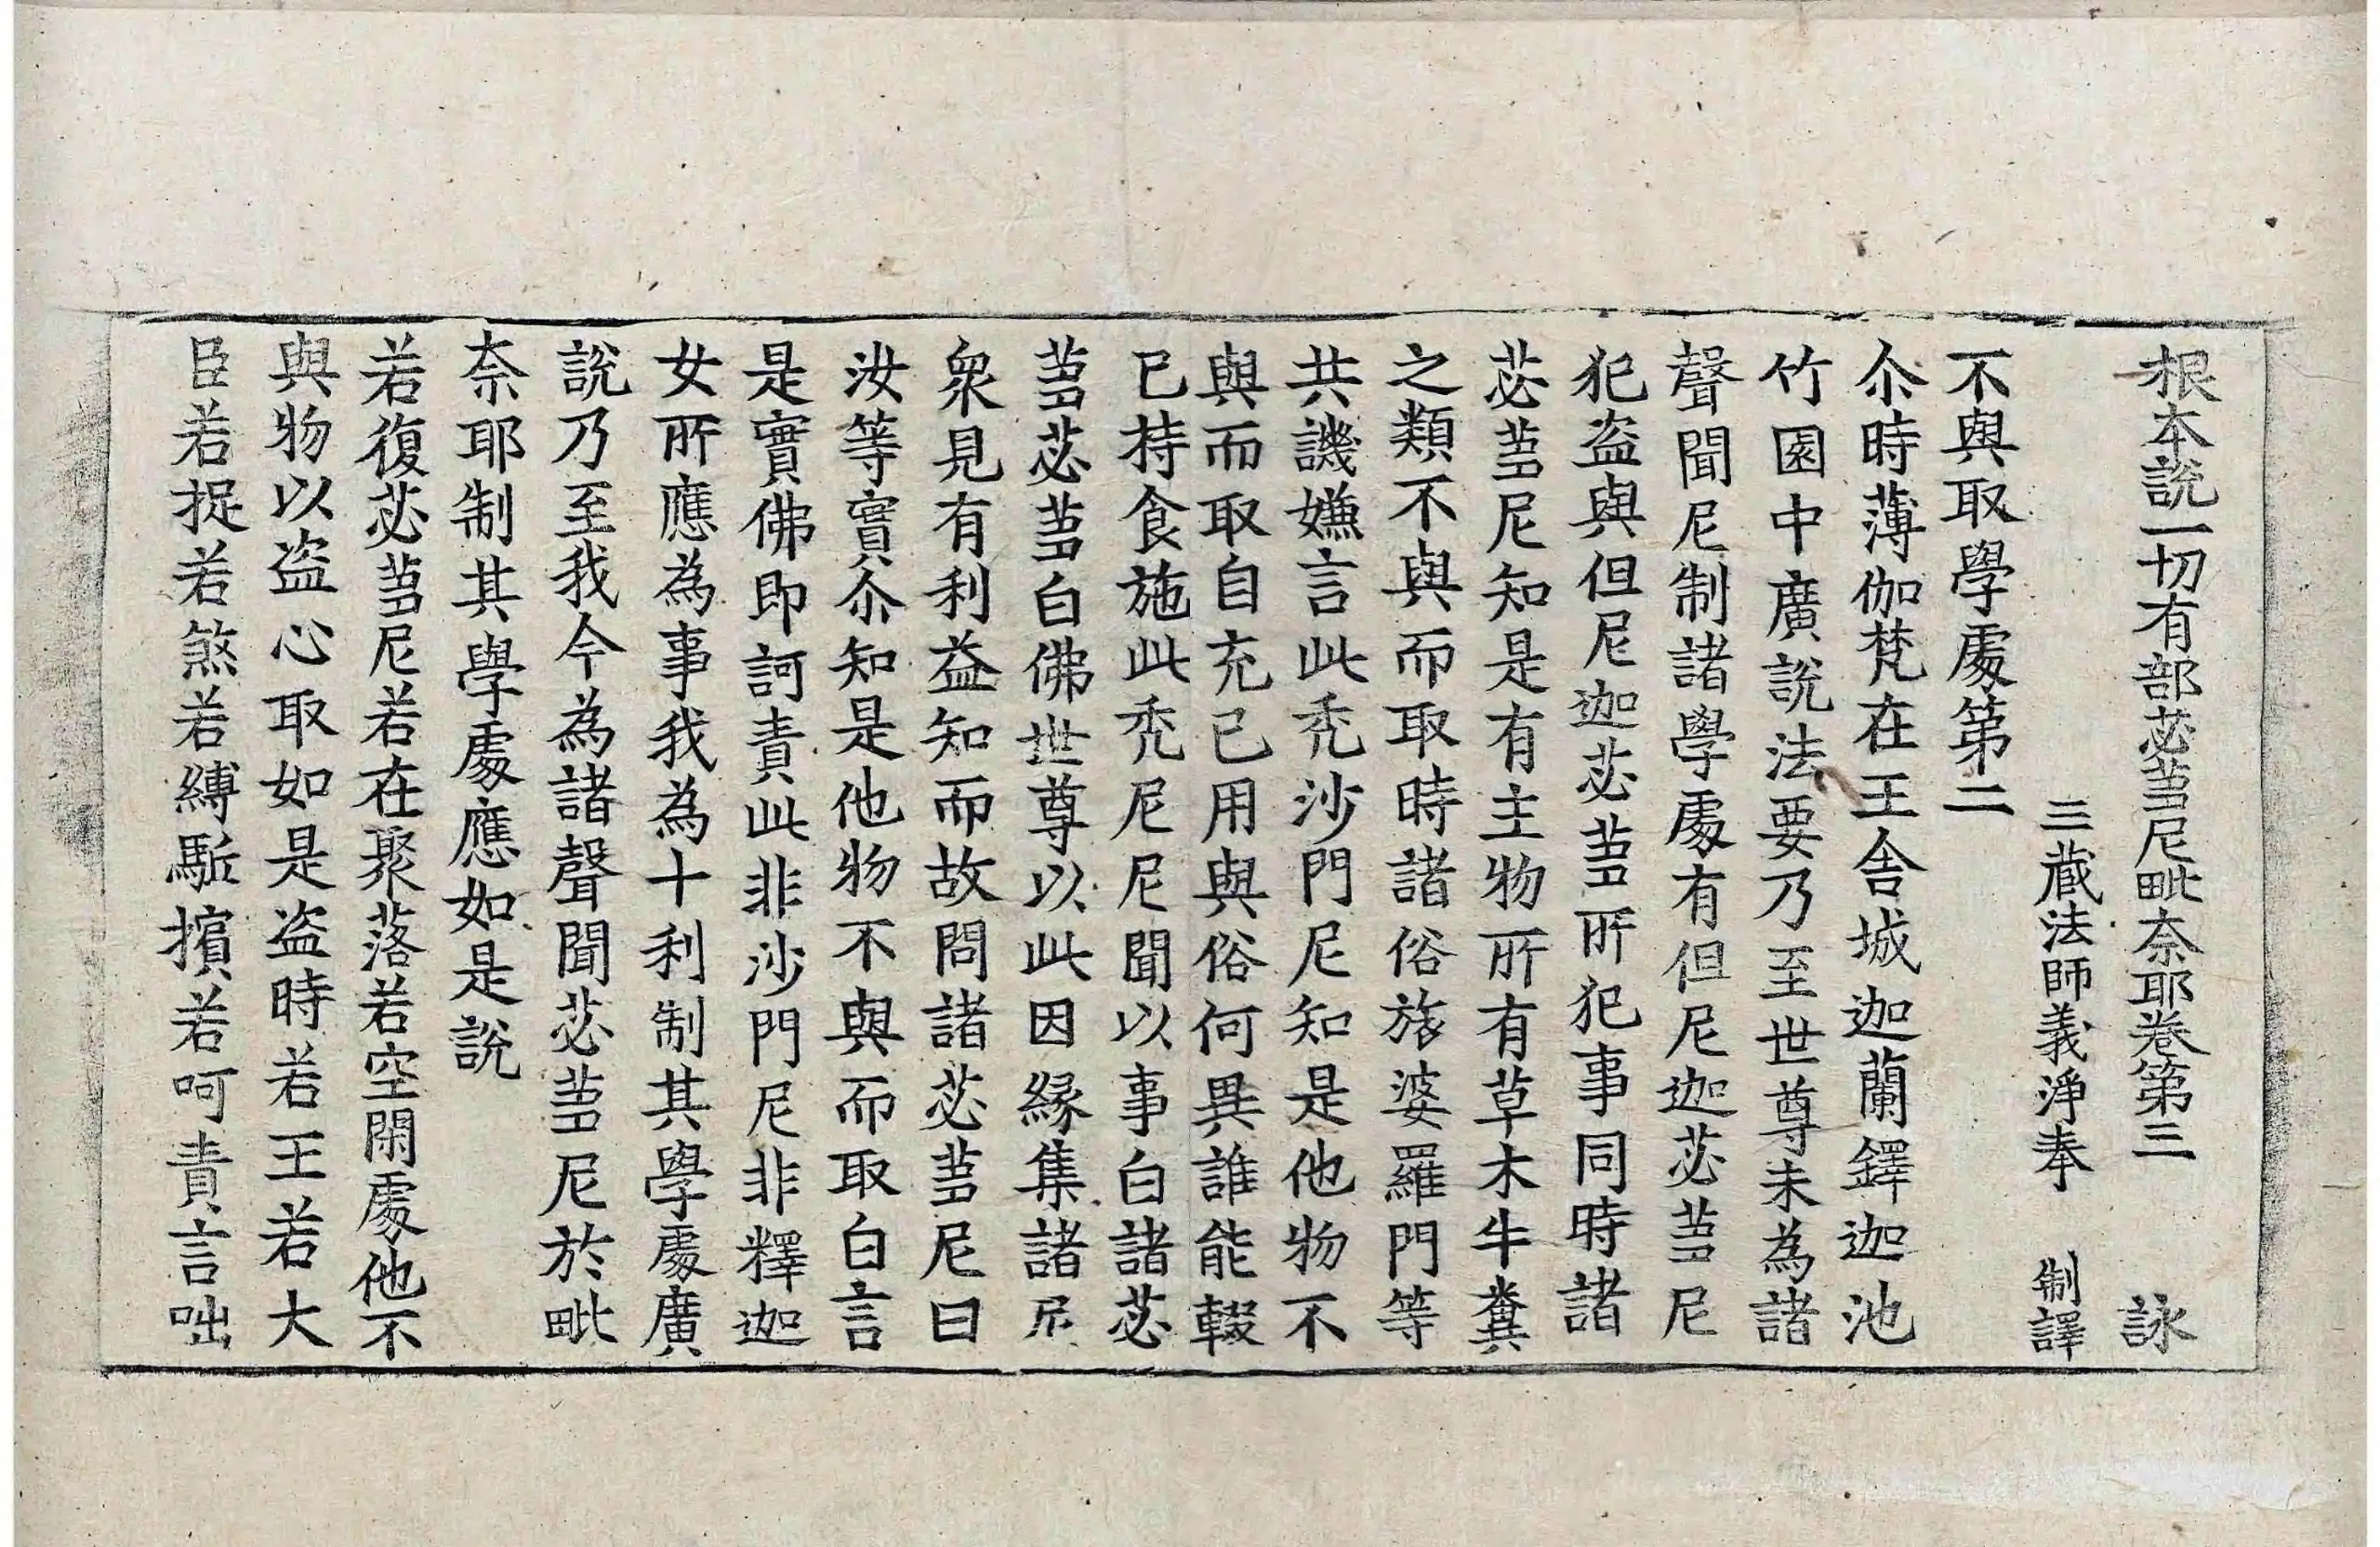 根本說一切有部苾芻尼毗柰耶卷第三　詠
三藏法師義淨奉　制譯
不與取學處第二
尒時薄伽梵在王舍城迦蘭鐸迦池
竹園中廣說法要乃至世尊未為諸
聲聞尼制諸學處有但尼迦苾芻尼
犯盜與但尼迦苾芻所犯事同時諸
苾芻尼知是有主物所有草木牛糞
之類不與而取時諸俗旅婆羅門等
共譏嫌言此禿沙門尼知是他物不
與而取自充已用與俗何異誰能輟
已持食施此禿尼尼聞以事白諸苾
芻苾芻白佛世尊以此因緣集諸尼
衆見有利益知而故問諸苾芻尼曰
汝等實尒知是他物不與而取白言
是實佛即訶責此非沙門尼非釋迦
女所應為事我為十利制其學處廣
說乃至我今為諸聲聞苾芻尼於毗
柰耶制其學處應如是說
若復苾芻尼若在聚落若空閑處他不
與物以盜心取如是盜時若王若大
臣若捉若煞若縛駈擯若呵責言咄